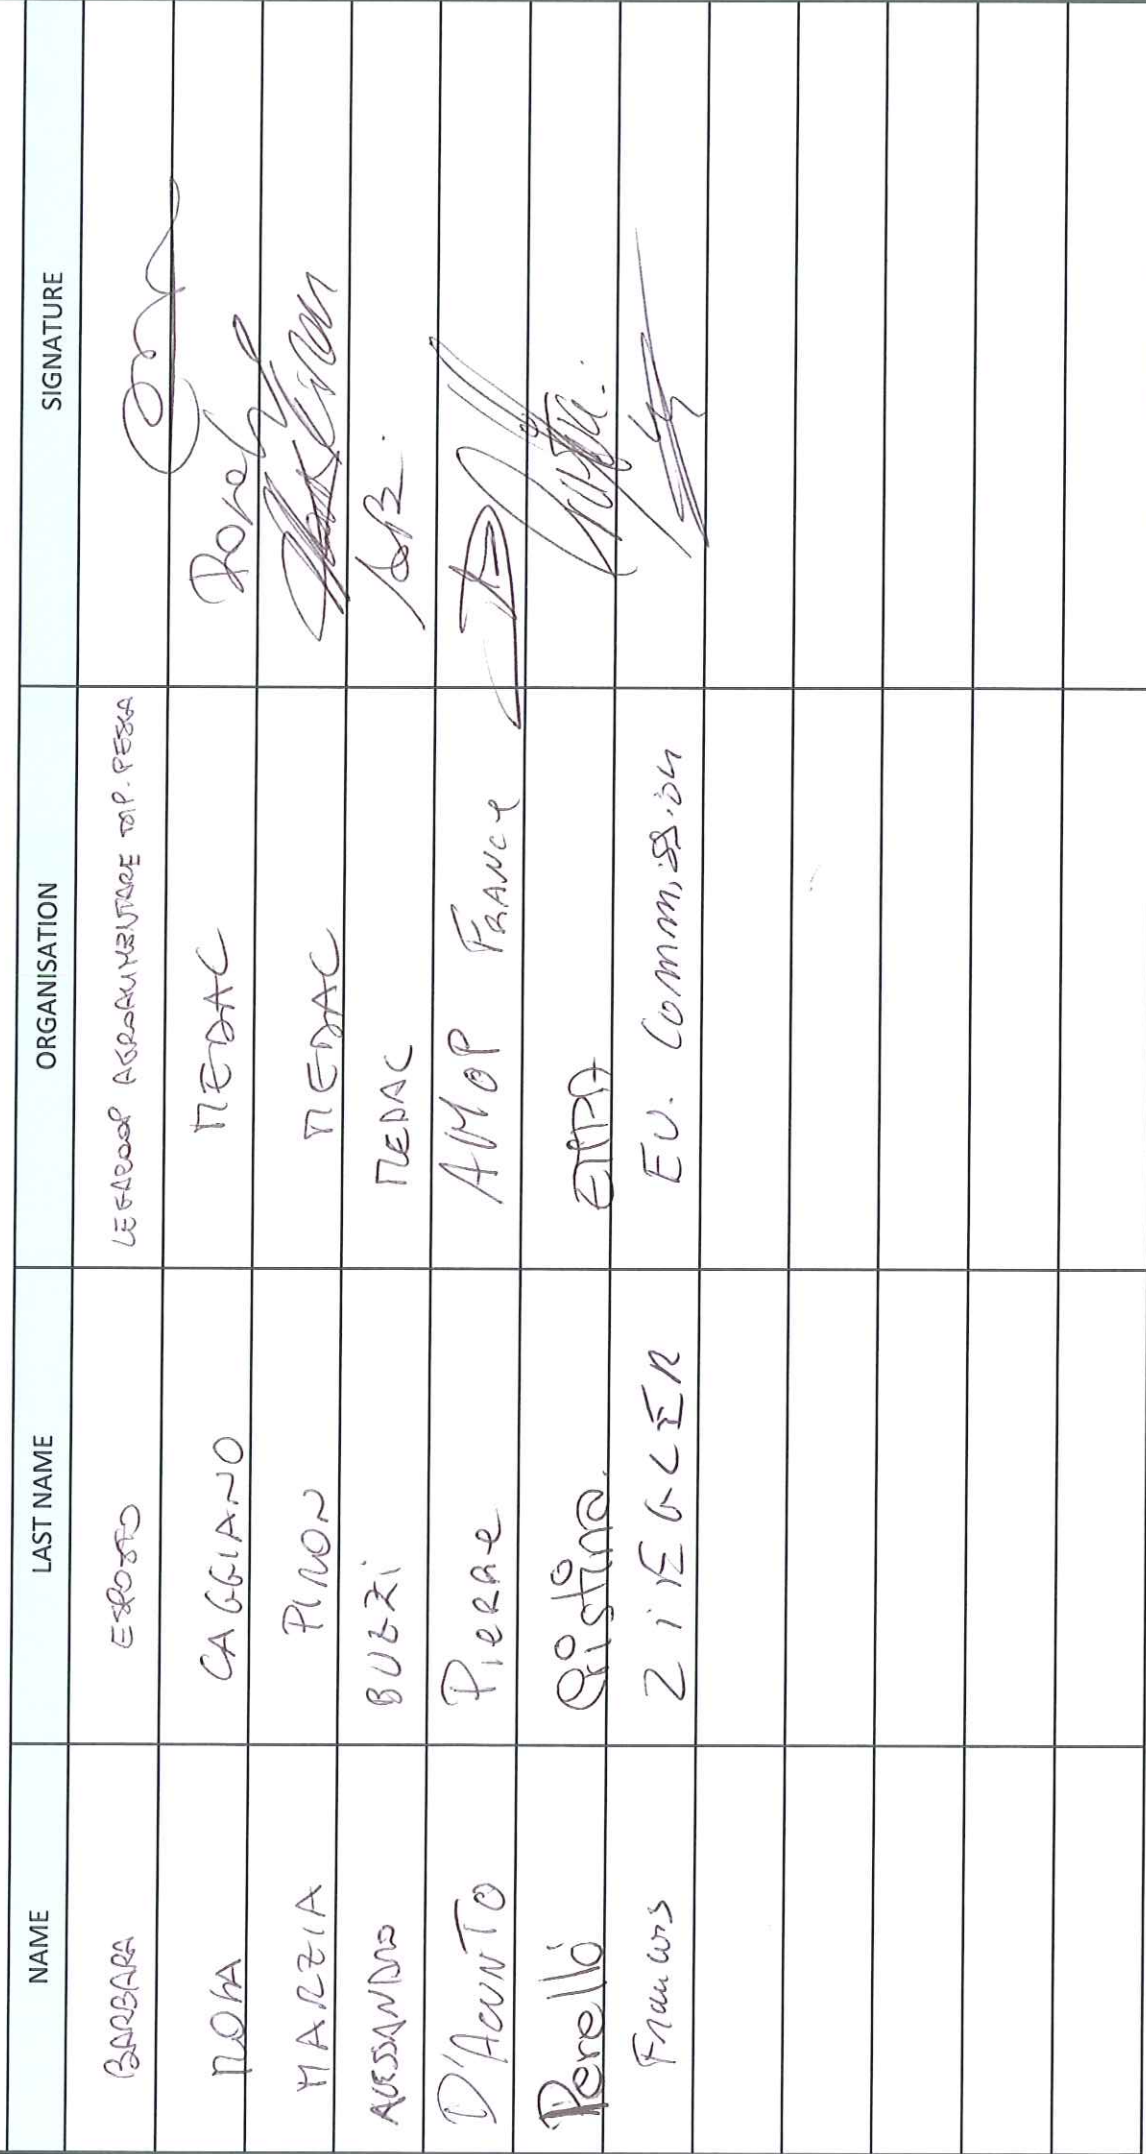 NAME LAST NAME ORGANISATION SIGNATURE
BARBARA ESPOSITO LEGACOOP AGROALIMENTARE DIP. PESCA
CAGGIANO MEDAC
MARZIA PIRON MEDAC
ALESSANDRO BUZZI MEDAC
D'ACUNTO PIERRE AMOP FRANCE
Perelló Cristina. EMPA
François ZIEGLER EU. Commission